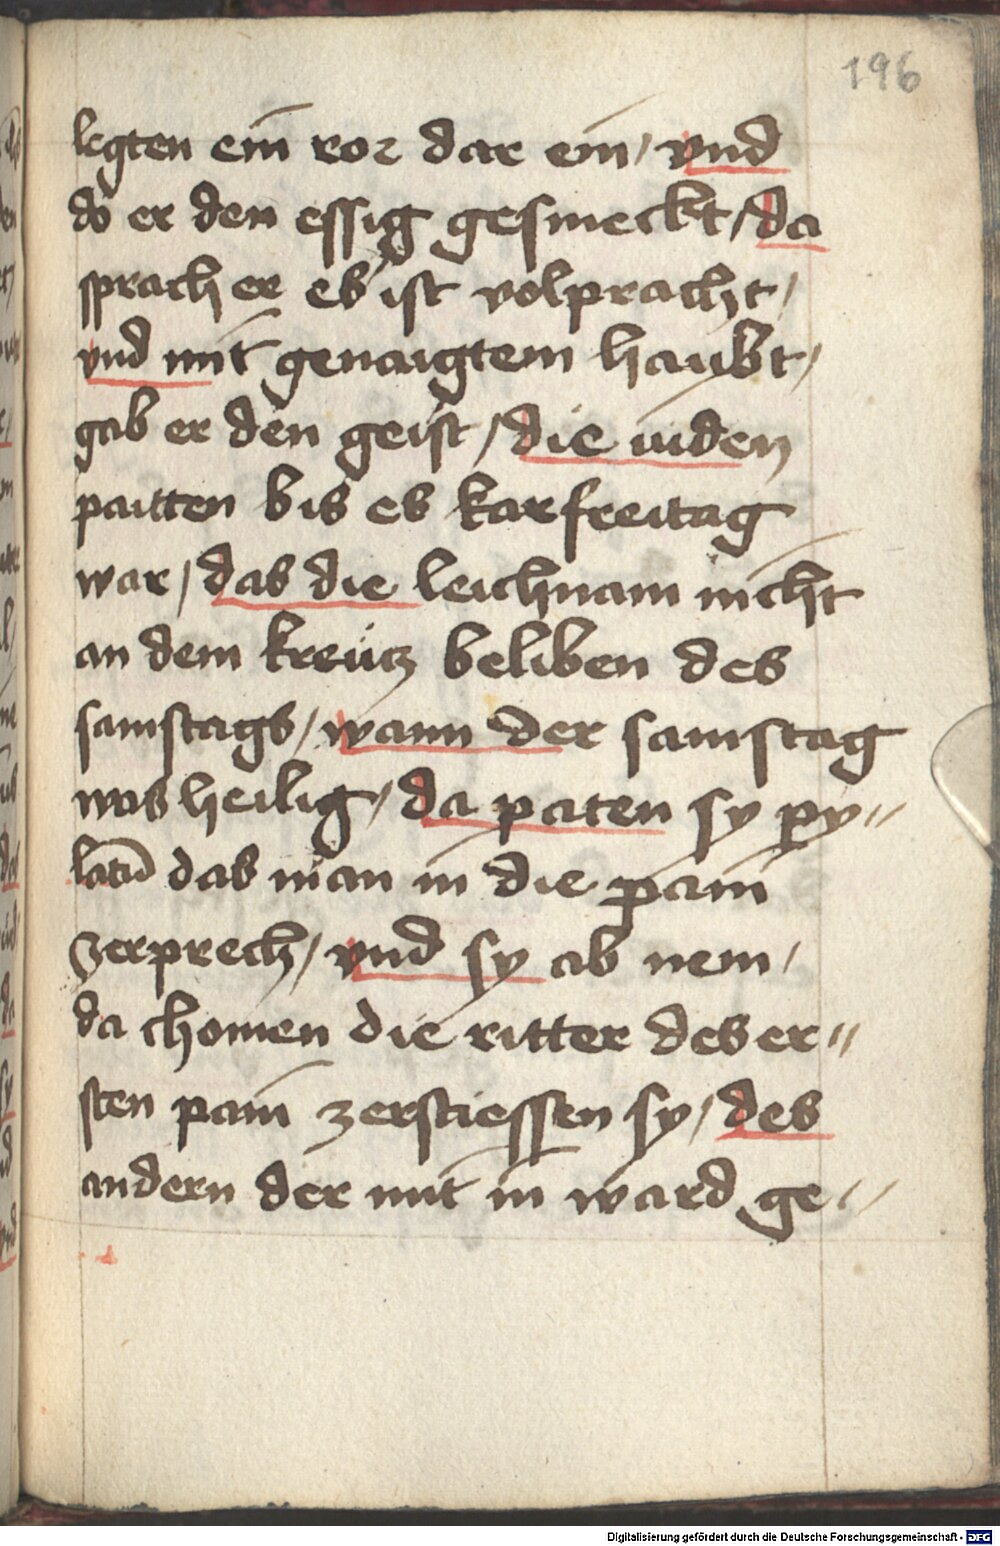 196
legten ein ror dar ein / vnd
do er den essig gesmeckt / da
sprach er es ist volpracht /
vnd mit genaigtem haubt /
gab er den geist / die iuden
paitten bis es karfreitag
war / das die leichnam nicht
an dem kreutz beliben des
samstags / wann der samstag
was heilig / da paten sy py〃
latū das man in die pain
zerprech / vnd sy ab nem /
da chomen die ritter des er〃
sten pain zerstiessen sy / des
andern der mit in ward ge〃
Digitalisierung gefördert durch die Deutsche Forschungsgemeinschaft - DFG